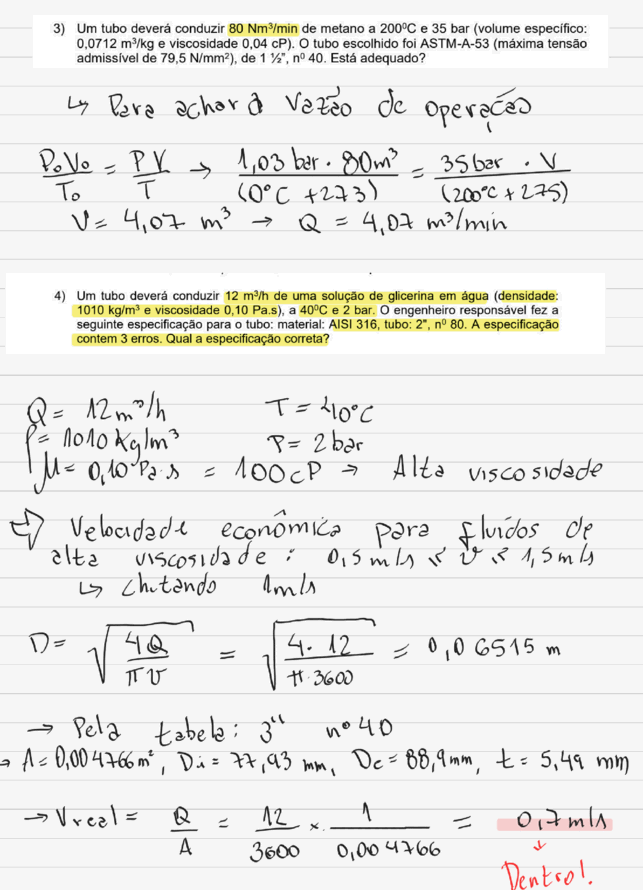 3) Um tubo deverá conduzir 80 Nm³/min de metano a 200ºC e 35 bar (volume específico:
0,0712 m³/kg e viscosidade 0,04 cP). O tubo escolhido foi ASTM-A-53 (máxima tensão
admissível de 79,5 N/mm²), de 1 ½", nº 40. Está adequado?
↳ Para achar a vazão de operação
P₀V₀/T₀ = PV/T → 1,03 bar · 80m³/(0°C + 273) = 35 bar · V/(200°C + 275)
V = 4,07 m³ → Q = 4,07 m³/min
4) Um tubo deverá conduzir 12 m³/h de uma solução de glicerina em água (densidade:
1010 kg/m³ e viscosidade 0,10 Pa.s), a 40ºC e 2 bar. O engenheiro responsável fez a
seguinte especificação para o tubo: material: AISI 316, tubo: 2", nº 80. A especificação
contem 3 erros. Qual a especificação correta?
Q = 12 m³/h T = 40°C
ρ = 1010 Kg/m³ P = 2 bar
μ = 0,10 Pa·s = 100 cP → Alta viscosidade
⇒ Velocidade econômica para fluídos de
alta viscosidade : 0,5 m/s ≤ v ≤ 1,5 m/s
↳ chutando 1m/s
D = √(4Q/πv) = √(4 · 12/π · 3600) = 0,06515 m
→ Pela tabela : 3" nº 40
→ A = 0,004766 m², Di = 77,93 mm, De = 88,9 mm, t = 5,49 mm
→ Vreal = Q/A = 12/3600 × 1/0,004766 = 0,7 m/s
↓
Dentro!